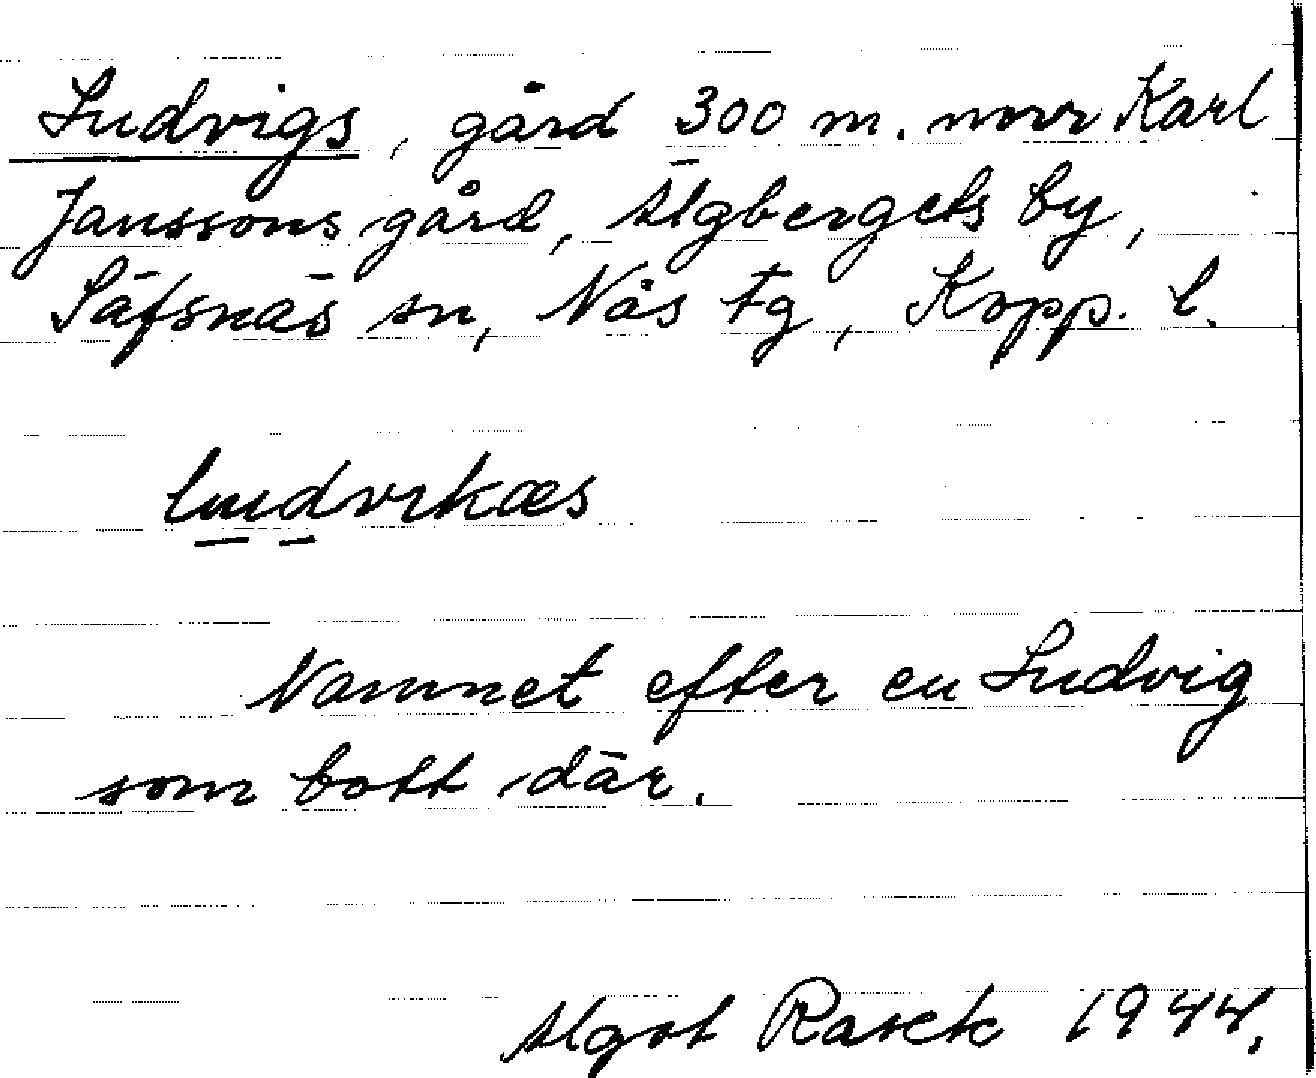 Ludvigs, gård 300 m. norr Karl
Janssons gård, Älgbergets by,
Säfsnäs sn, Nås tg, Kopp. l.
ludvikæs
Namnet efter en Ludvig
som bott där.
Algot Rasck 1944.